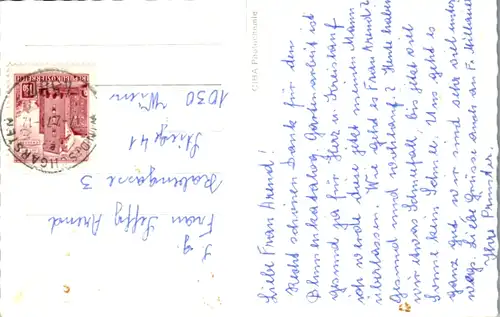 Liebe Frau Arend!
Recht schönen Dank für den
Blumenkatalog. Gartenarbeit ist
gesund ja für Herz u. Kreislauf
ich werde diese jetzt meinem Mann
überlassen. Wie geht es Frau Arend?
Gesund und wohlauf? Heute haben
wir etwas Schneefall, bis jetzt viel
Sonne kein Schnee. Uns geht es
ganz gut, wir sind sehr viel unter-
wegs. Liebe Grüsse auch an Fr. Millauer
Ihre
CIBA Photochemie
Frau Steffy Arend
Rabengasse 3
Stiege 41
1030 Wien
REPUBLIK ÖSTERREICH
GARSTEN